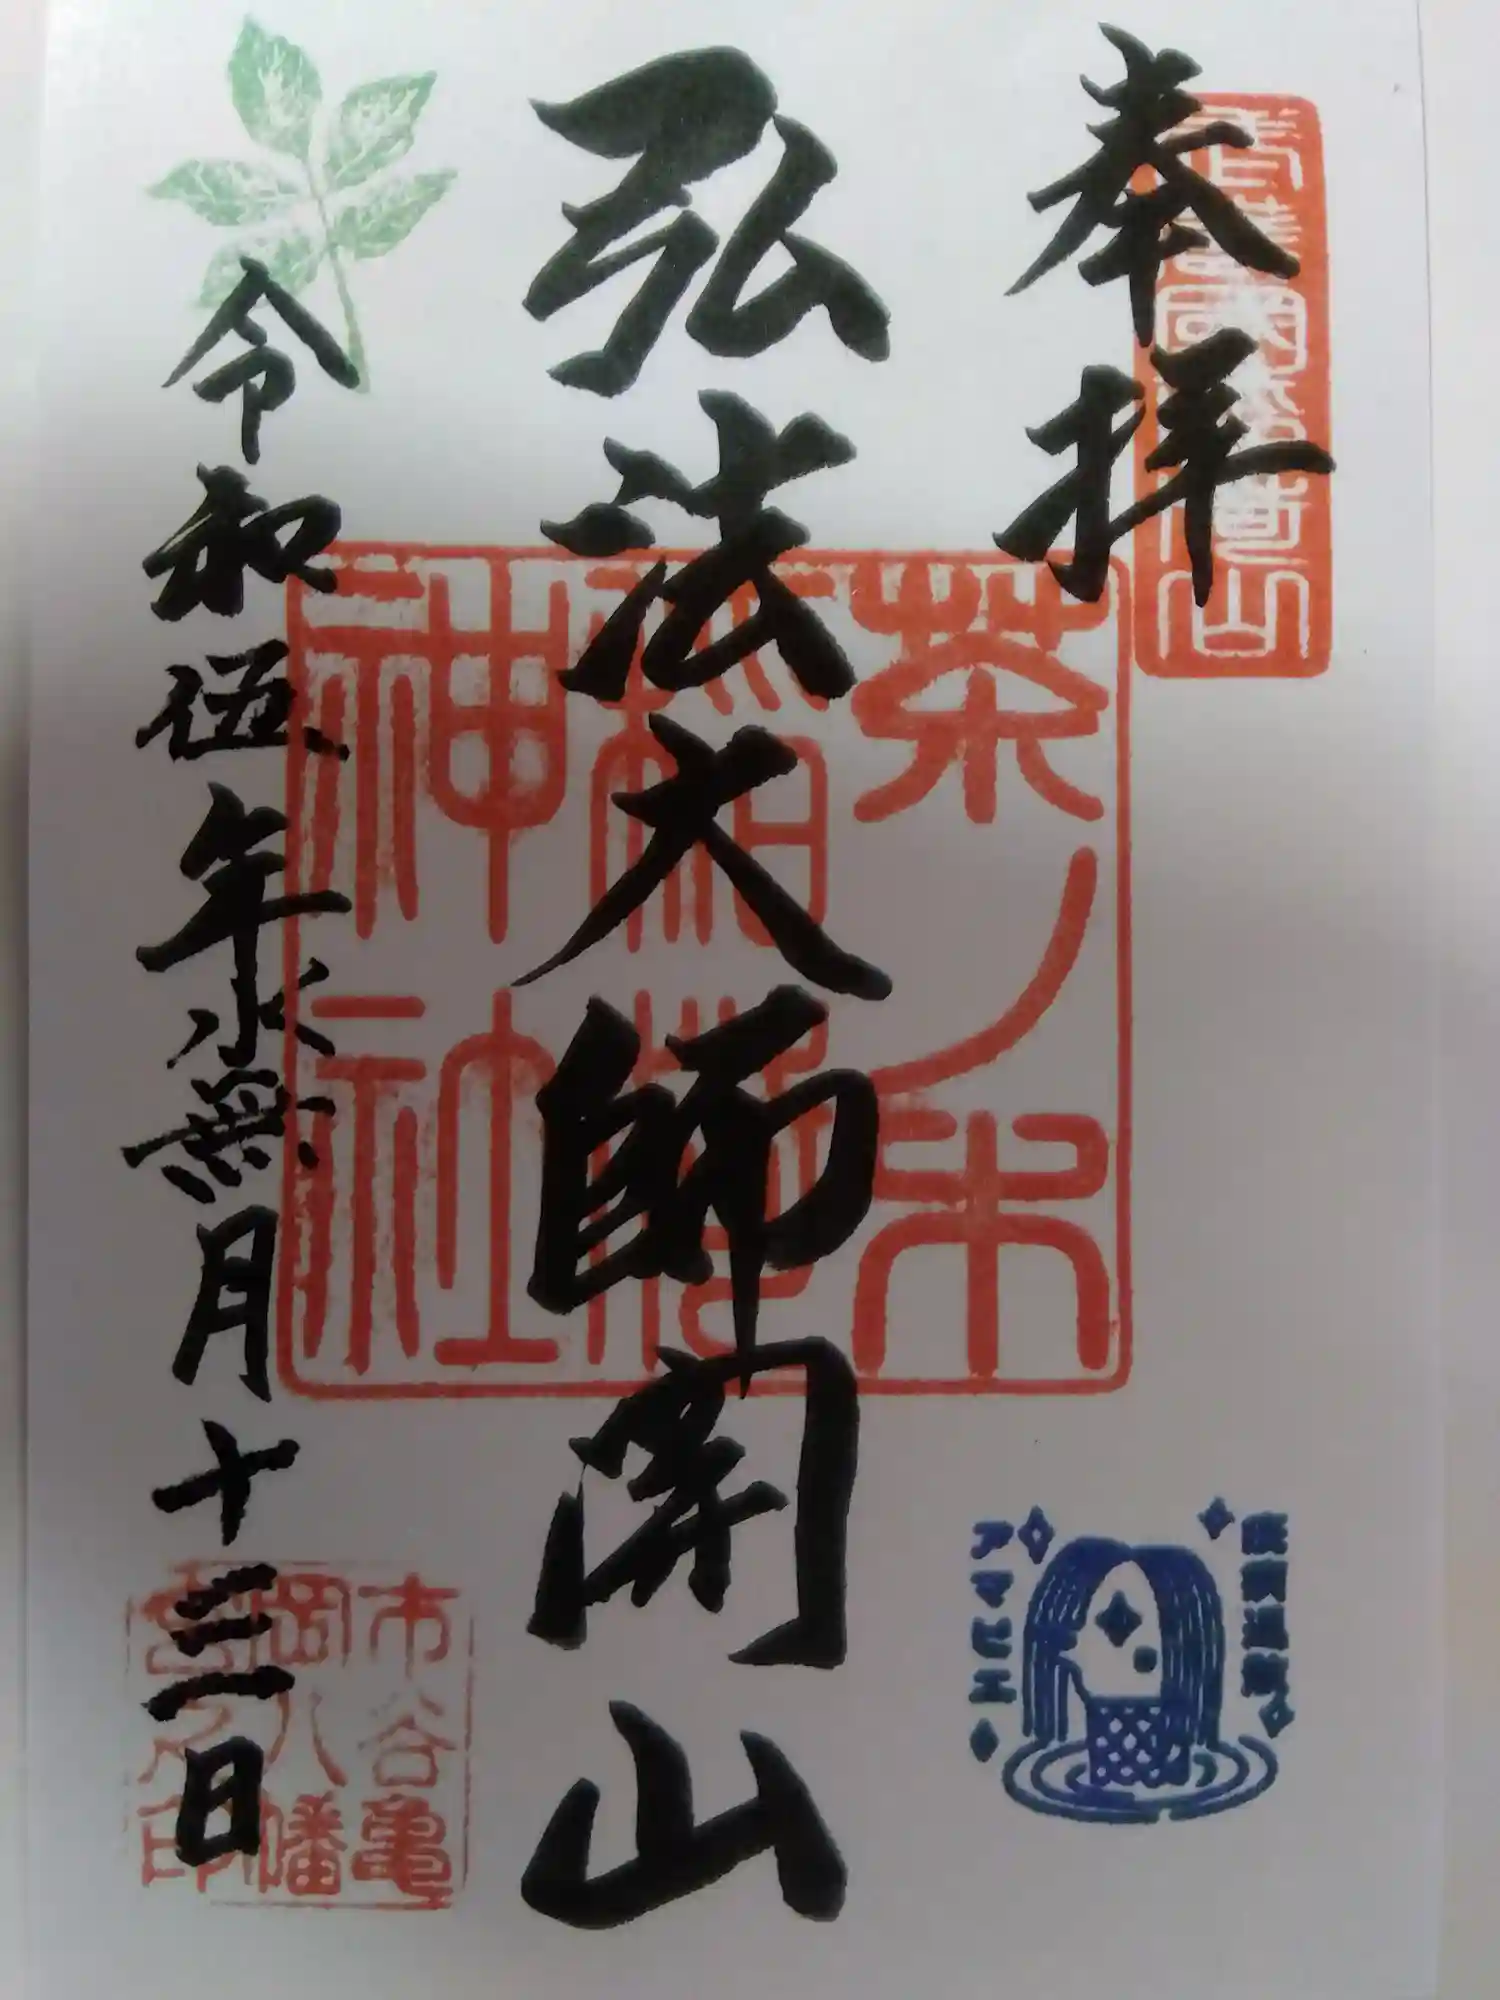 奉拝
茶ノ木
稲荷
神社
弘法大師開山
令和伍年水無月十三日
市谷亀
岡八幡
宮之印
アマビエ